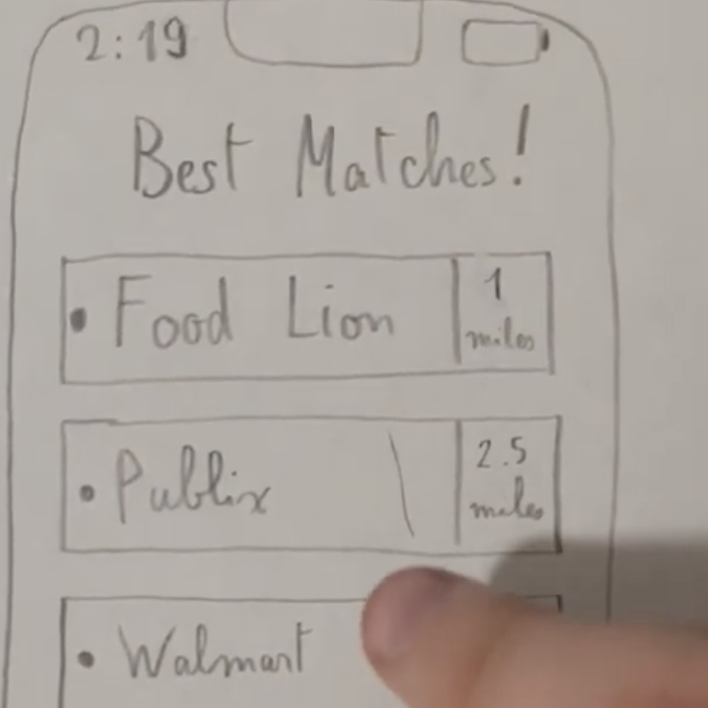 2:19
Best Matches!
• Food Lion
1
miles
• Publix
2.5
miles
• Walmart